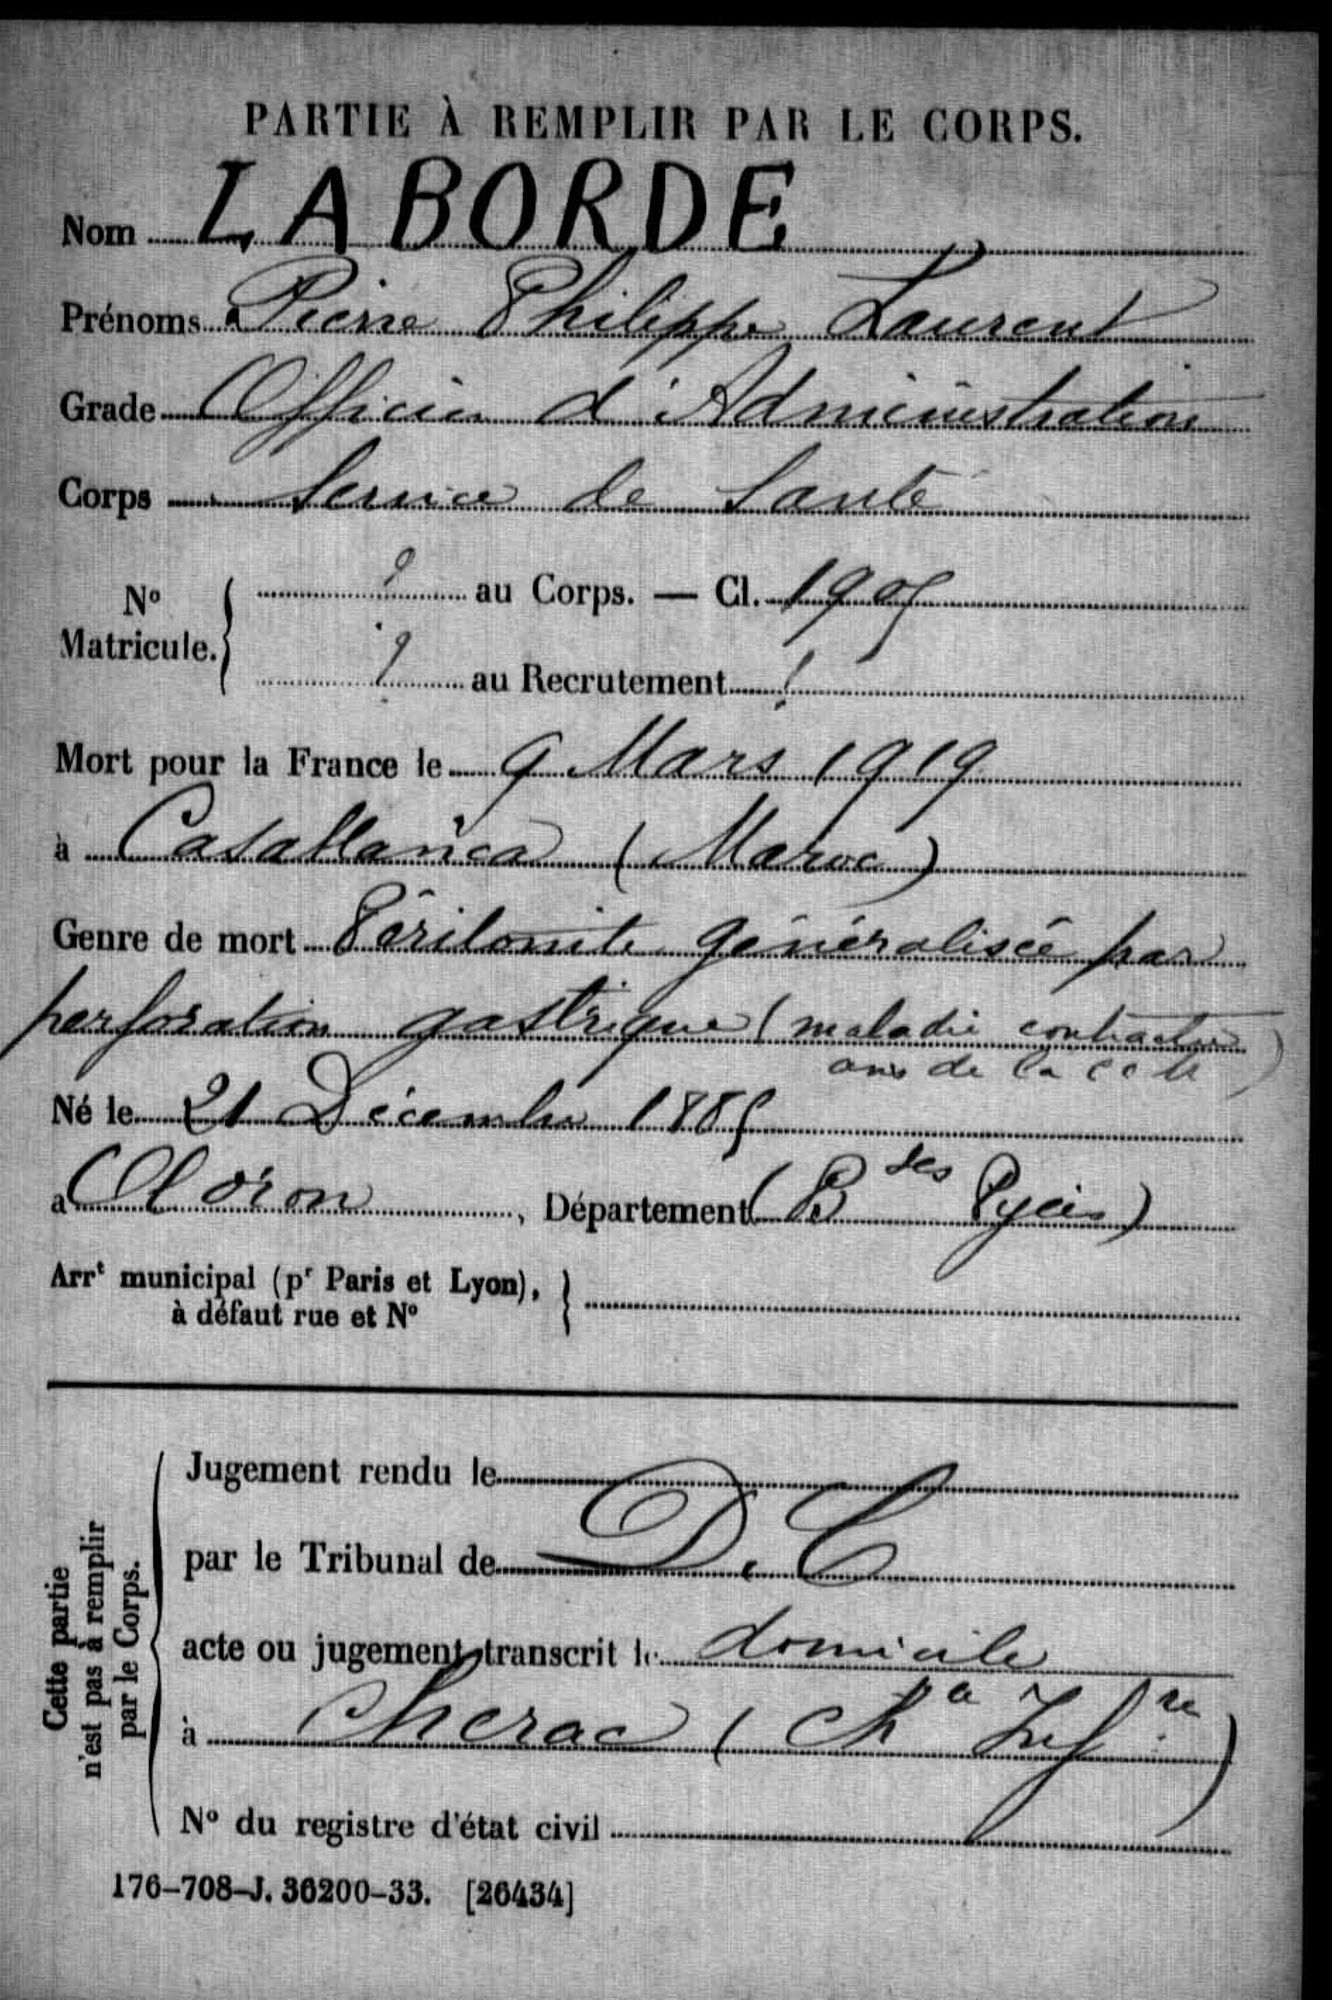 PARTIE À REMPLIR PAR LE CORPS.
Nom LABORDE
Prénoms Pierre Philippe Laurent
Grade Officier d'Administration
Corps Service de Santé
No Matricule. { ? au Corps. — Cl. 1905
? au Recrutement ?
Mort pour la France le 9 Mars 1919
à Casablanca (Maroc)
Genre de mort Péritonite généralisée par
perforation gastrique (maladie contractée
de la )
Né le 21 Décembre 1885
à Oloron, Département (Bses Pyées)
Arrt municipal (pr Paris et Lyon),
à défaut rue et No }
Cette partie
n'est pas à remplir
par le Corps.
Jugement rendu le
par le Tribunal de D. C
acte ou jugement transcrit le domicile
à Cherac (Chte Infre)
No du registre d'état civil
176-708-J. 36200-33. [26434]